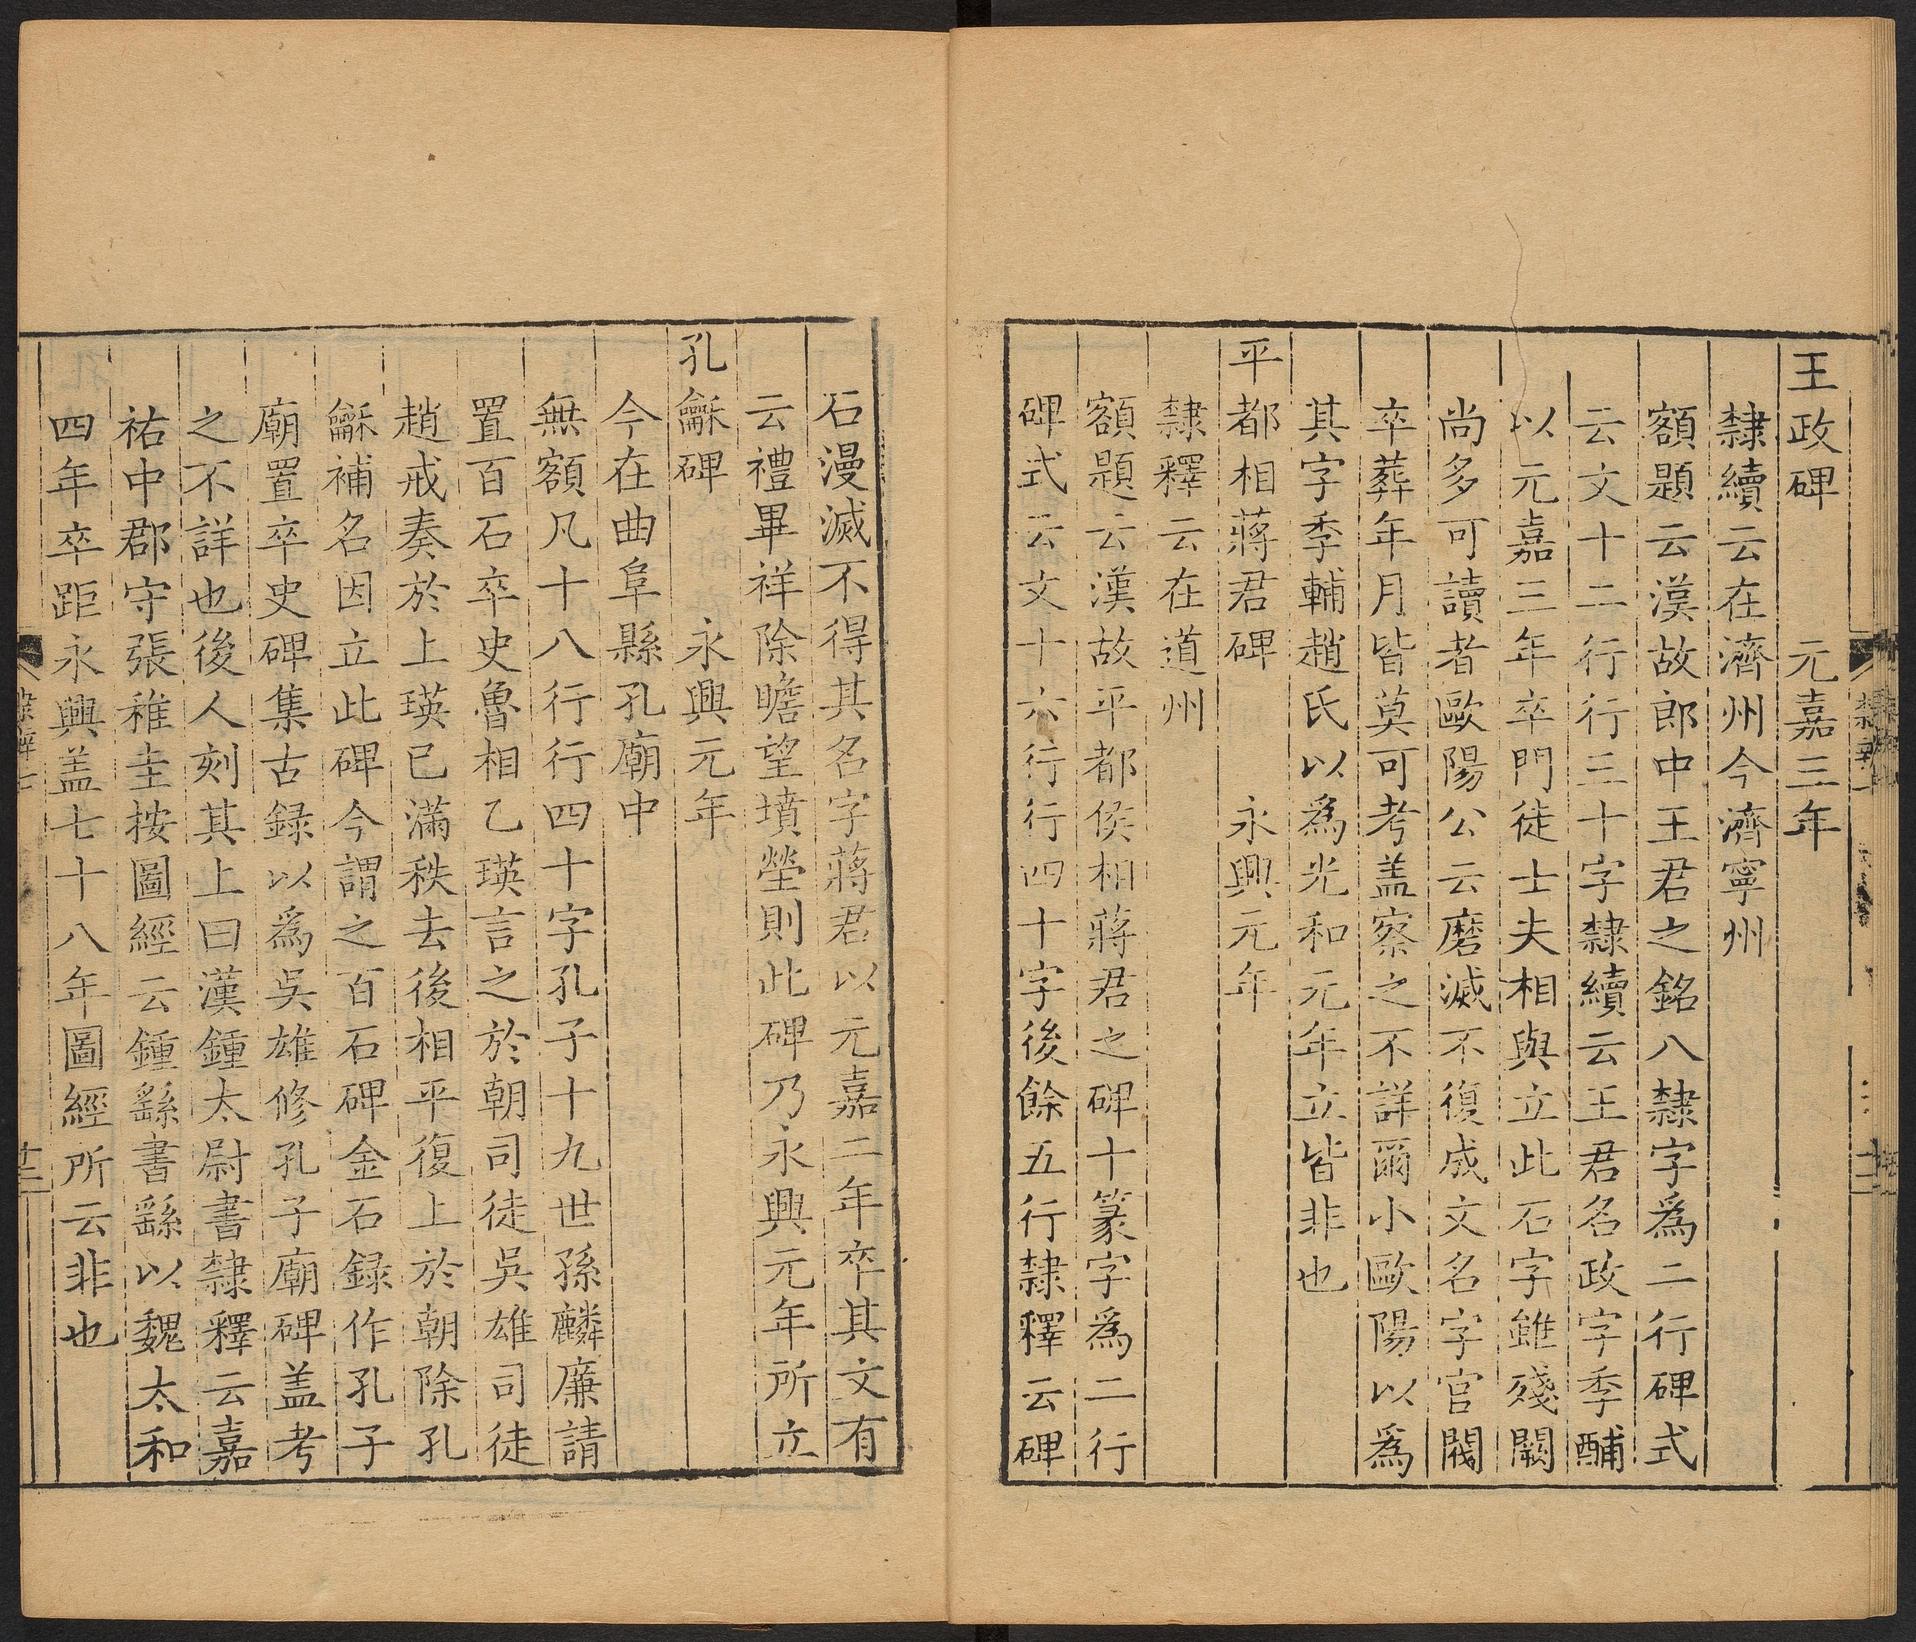 王政碑　元嘉三年
隸續云在濟州今濟寧州
額題云漢故郎中王君之銘八隸字爲二行碑式
云文十二行行三十字隸續云王君名政字季酺
以元嘉三年卒門徒士夫相與立此石字雖殘闕
尚多可讀者歐陽公云磨滅不復成文名字官閥
卒葬年月皆莫可考盖察之不詳爾小歐陽以爲
其字季輔趙氏以爲光和元年立皆非也
平都相蔣君碑　永興元年
隸釋云在道州
額題云漢故平都侯相蔣君之碑十篆字爲二行
碑式云文十六行行四十字後餘五行隸釋云碑
石漫滅不得其名字蔣君以元嘉二年卒其文有
云禮畢祥除瞻望墳塋則此碑乃永興元年所立
孔龢碑　永興元年
今在曲阜縣孔廟中
無額凡十八行行四十字孔子十九世孫麟廉請
置百石卒史魯相乙瑛言之於朝司徒吳雄司徒
趙戒奏於上瑛已滿秩去後相平復上於朝除孔
龢補名因立此碑今謂之百石碑金石録作孔子
廟置卒史碑集古録以爲吳雄修孔子廟碑盖考
之不詳也後人刻其上曰漢鍾太尉書隸釋云嘉
祐中郡守張稚圭按圖經云鍾繇書繇以魏太和
四年卒距永興盖七十八年圖經所云非也